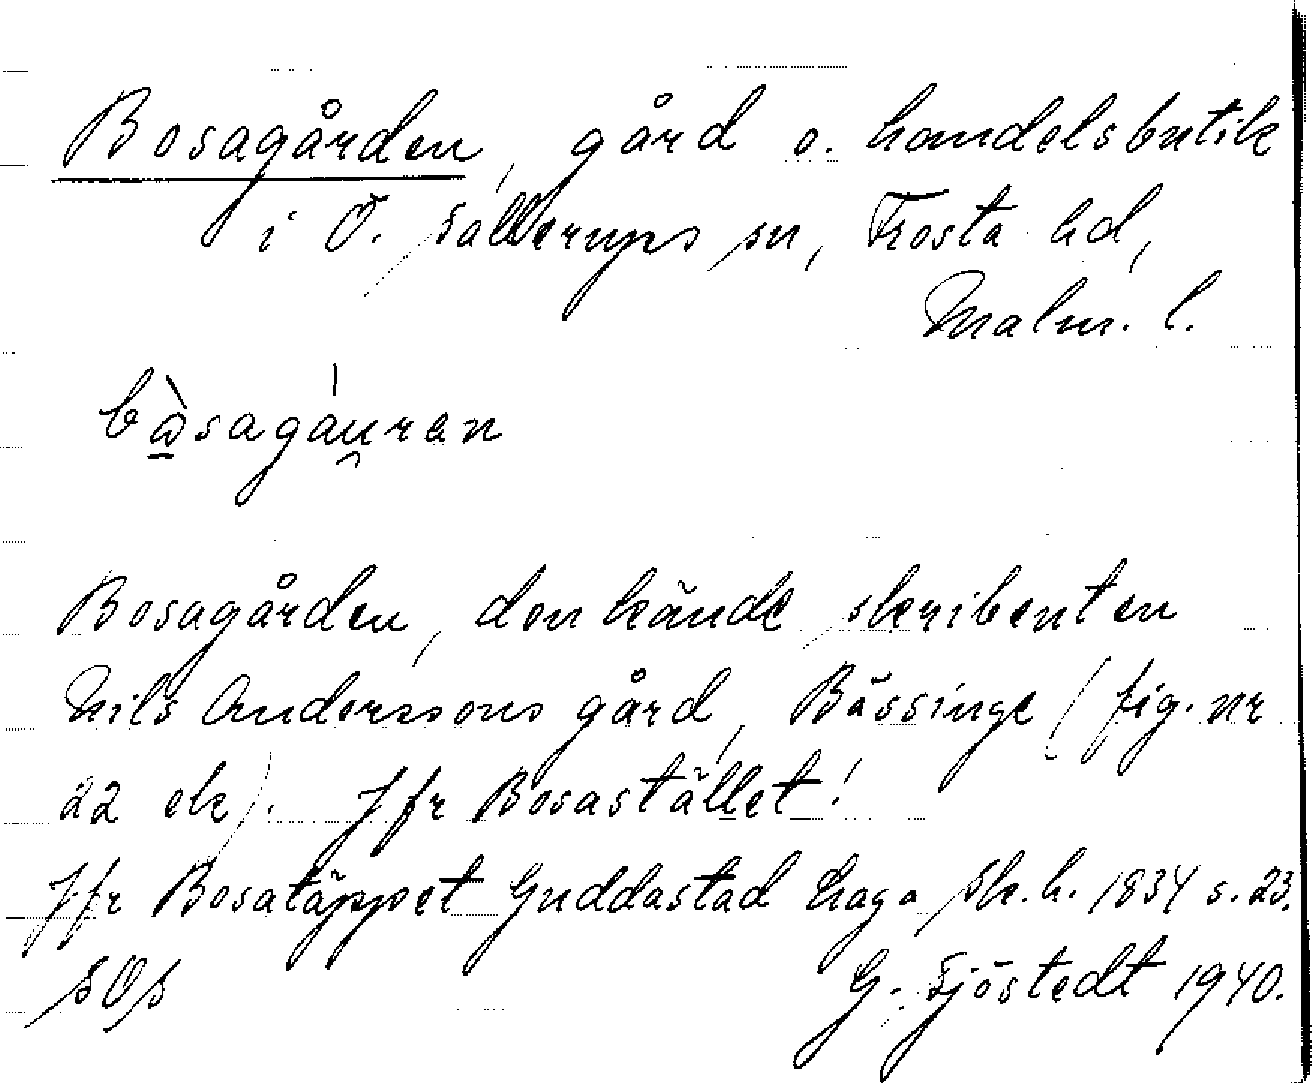 Bosagården, gård o. handelsbutik
i Ö. Sallerups sn, Frosta hd,
Malm. l.
bòsagáu̯ran
Bosagården, den kände skribenten
Nils Anderssons gård, Bässinge (fig. nr
22 ek). Jfr Bosastället!
Jfr Bosatäppet Guddastad Haga Sk. h. 1834 s. 23.
SOS G. Sjöstedt 1940.